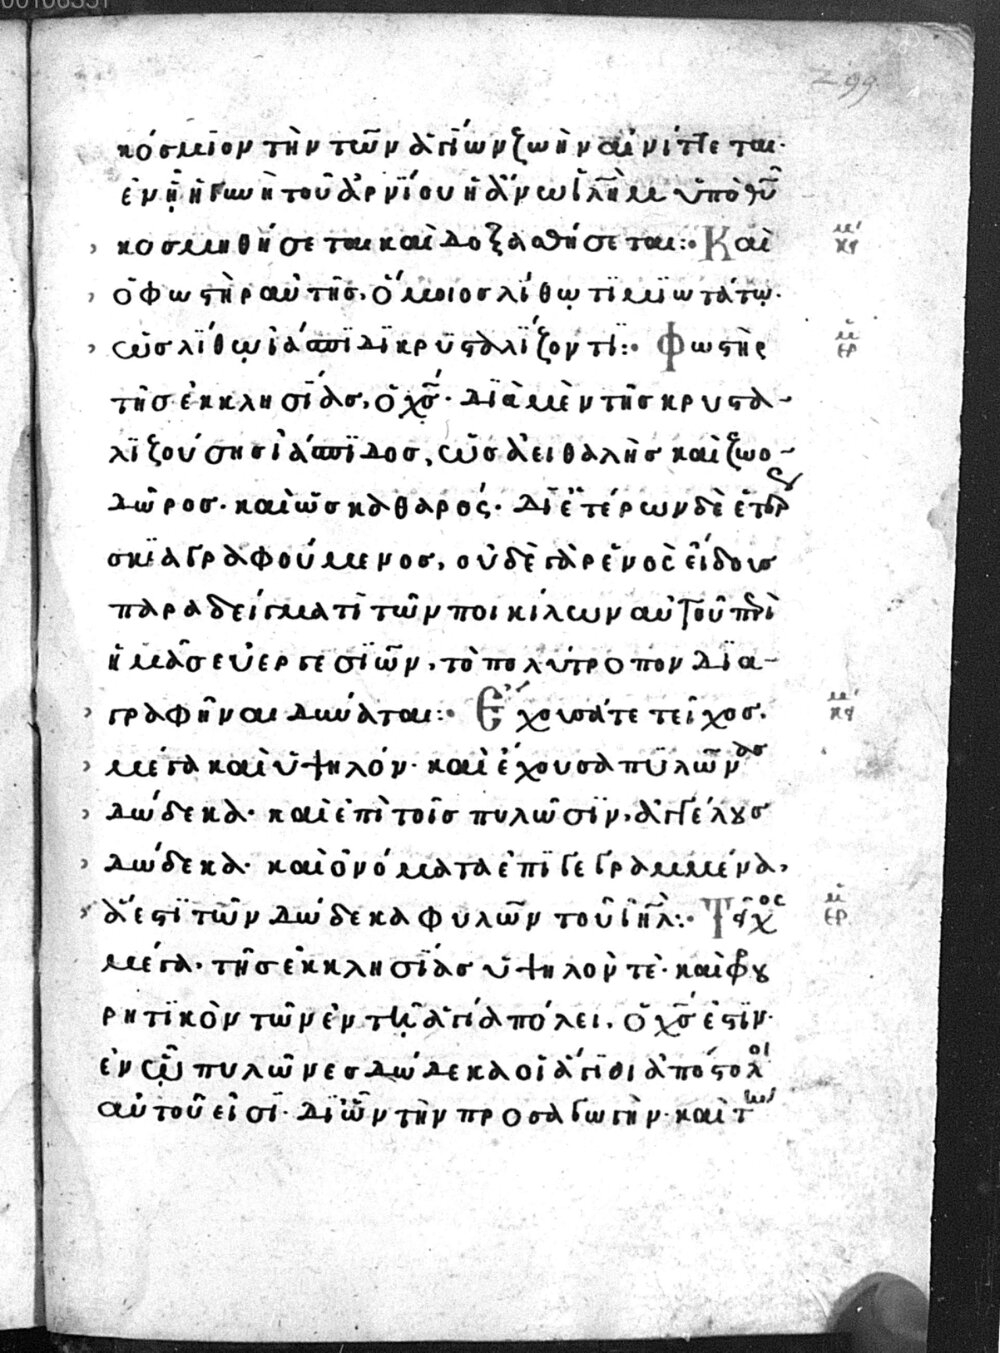 299
κόσμιον τὴν τῶν ἁγίων ζωὴν αἰνίττεται·
ἐν ᾗ ἡ γυνὴ τοῦ ἀρνΐου ἡ ἄνω ῑλῆμ ὑπὸ θῦ
› κοσμηθήσεται καὶ δοξασθήσεται:· Καὶ κείμ
› ὁ φωστὴρ αὐτῆς, ὅμοιος λΐθῳ τϊμϊωτάτῳ·
› ὡς λΐθῳ ἰάσπϊδι κρυσταλΐζοντϊ:· Φωστὴρ ἑρμ
τῆς ἐκκλησΐας, ὁ χς̄· διὰ μὲν τῆς κρυστα-
λΐζούσης ἰάσπϊδος, ὡς ἀειθαλὴς καὶ ζωο-
δῶρος· καὶ ὡς καθαρός· δι' ἑτέρων δὲ ἑτέρως
σκϊαγραφούμενος, οὐδὲ γὰρ ἑνὸς εἴδους
παραδείγματι τῶν ποικίλων αὐτοῦ περὶ
ἡμᾶς εὐεργεσϊῶν, τὸ πολύτροπον δϊα-
› γραφῆναι δύναται:· Ἔχουσά τε τεῖχος. κείμ
› μέγα καὶ ὑψηλόν· καὶ ἔχουσα πυλῶνας
› δώδεκα· καὶ ἐπὶ τοῖς πυλῶσϊν, ἀγγέλους
› δώδεκα· καὶ ὀνόματα ἐπϊγεγραμμένα,
› ἅ ἐστϊ τῶν δώδεκα φυλῶν τοῦ ῑηλ:· Τεῖχος ἑρμ
μέγα· τῆς ἐκκλησΐας ὑψηλόν τε· καὶ φρου
ρητϊκὸν τῶν ἐν τῇ ἁγίᾳ πόλει, ὁ χς̄ ἐστϊν·
ἐν ᾧ πυλῶνες δώδεκα οἱ ἅγϊοι ἀπόστολοι
αὐτοῦ εἰσί· δι' ὧν τὴν προσαγωγὴν· καὶ τὴν